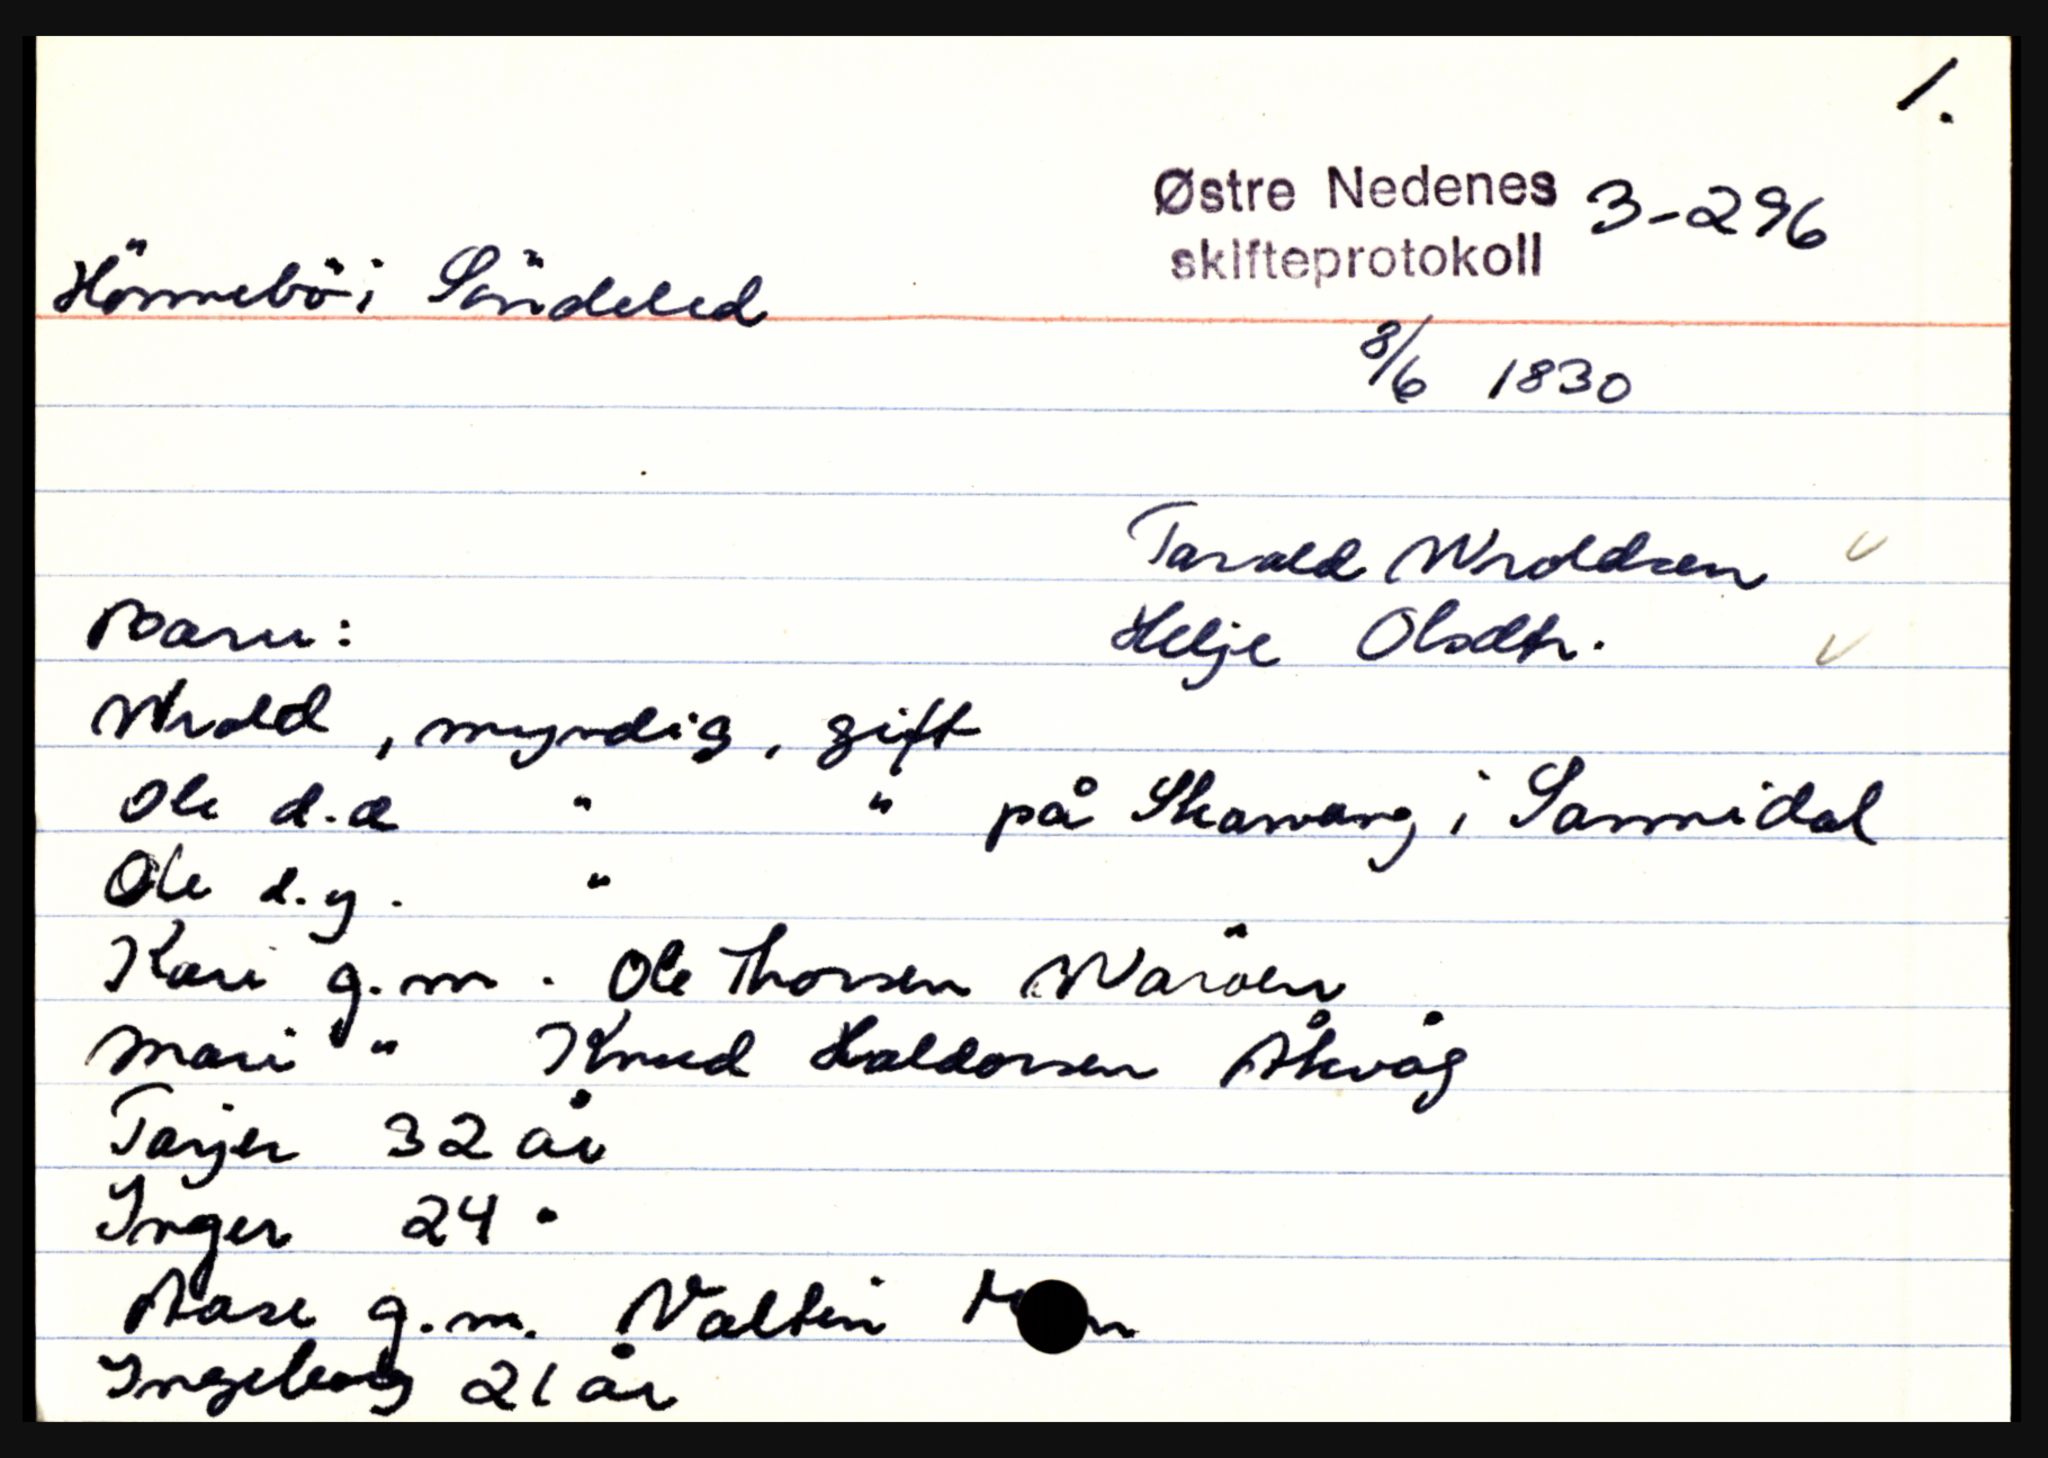 1.
Østre Nedenes 3-296
skifteprotokoll
Hömmebö i Söndeled
8/6 1830
Tarald Wroldsen
Barn:
Helje Olsdtr.
Wrold, myndig, gift
Ole d.e " " på Skarvang i Sannidal
Ole d.y. "
Kari g.m. Ole Thorsen Waröen
Mari " Knud Haldorsen Åkvåg
Tarjer 32 år
Inger 24 "
Aase g.m. Valtin
Ingeborg 21 år